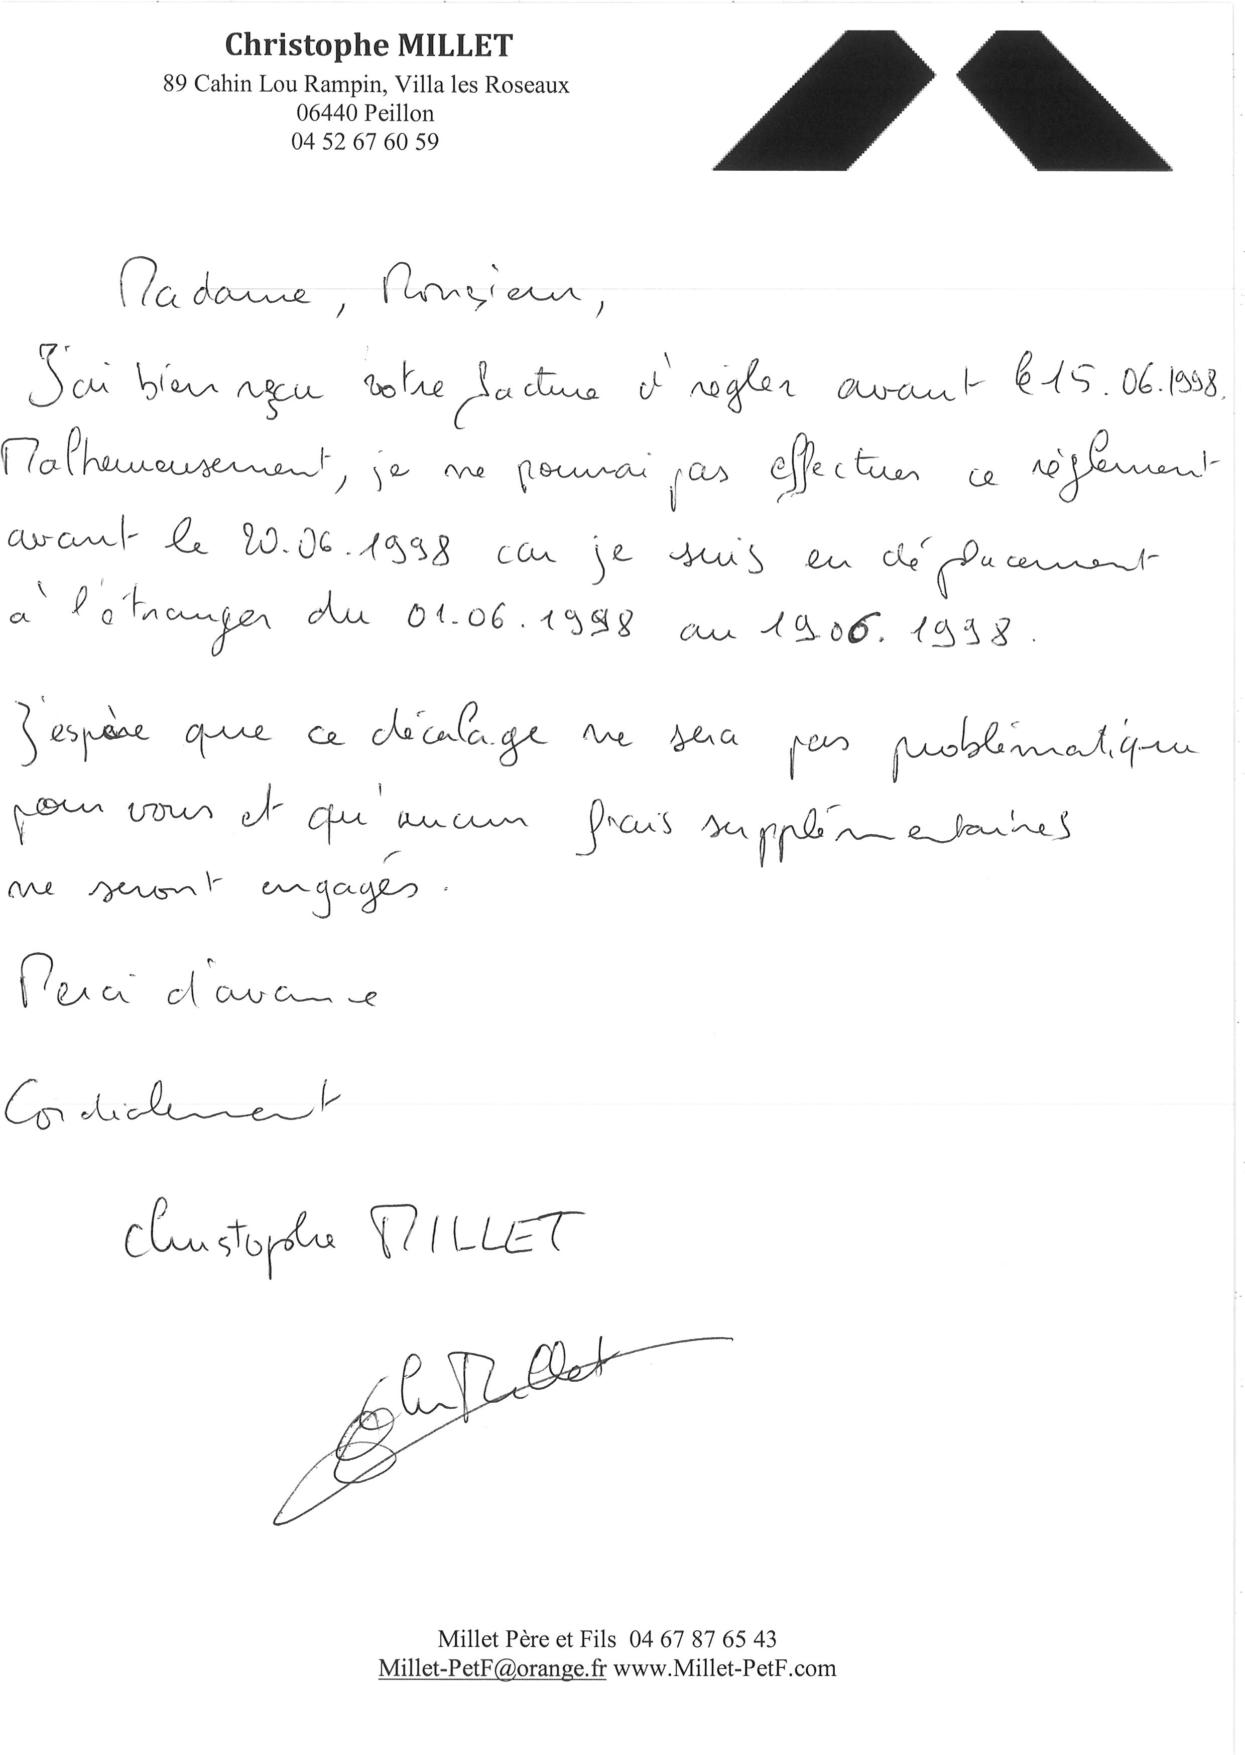 Christophe MILLET
89 Cahin Lou Rampin, Villa les Roseaux
06440 Peillon
04 52 67 60 59
Madame, Monsieur,
J'ai bien reçu votre facture à régler avant le 15.06.1998.
Malheureusement, je ne pourrai pas effectuer ce règlement
avant le 20.06.1998 car je suis en déplacement
à l'étranger du 01.06.1998 au 19.06.1998.
J'espère que ce décalage ne sera pas problématique
pour vous et qu'aucun frais supplémentaires
ne seront engagés.
Merci d'avance
Cordialement
Christophe MILLET
Chr Millet
Millet Père et Fils 04 67 87 65 43
Millet-PetF@orange.fr www.Millet-PetF.com